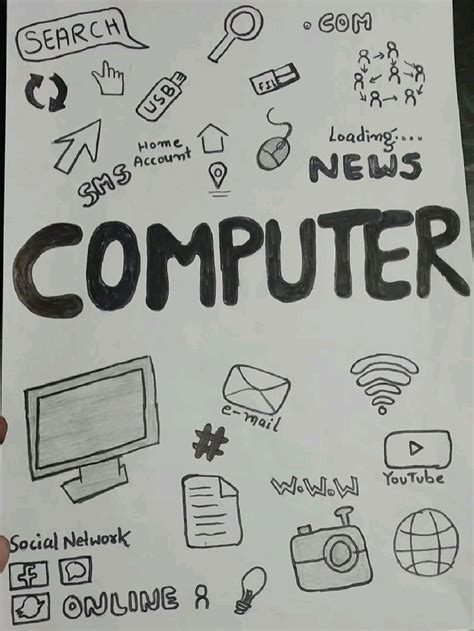 SEARCH
.COM
USB
FIL
Home
Account
SMS
Loading....
NEWS
COMPUTER
e-mail
#
YouTube
W.W.W
Social Network
f
ONLINE